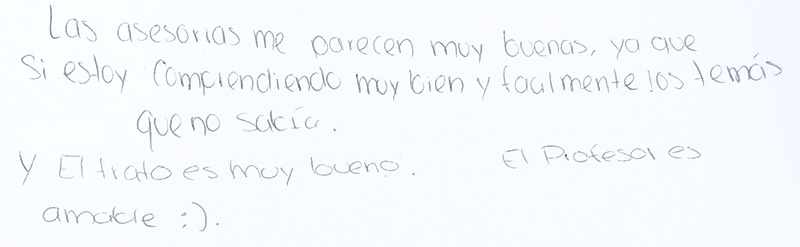 Las asesorias me parecen muy buenas, ya que
si estoy comprendiendo muy bien y facilmente los temás
que no sabía.
Y El trato es muy bueno. El Profesor es
amable :).